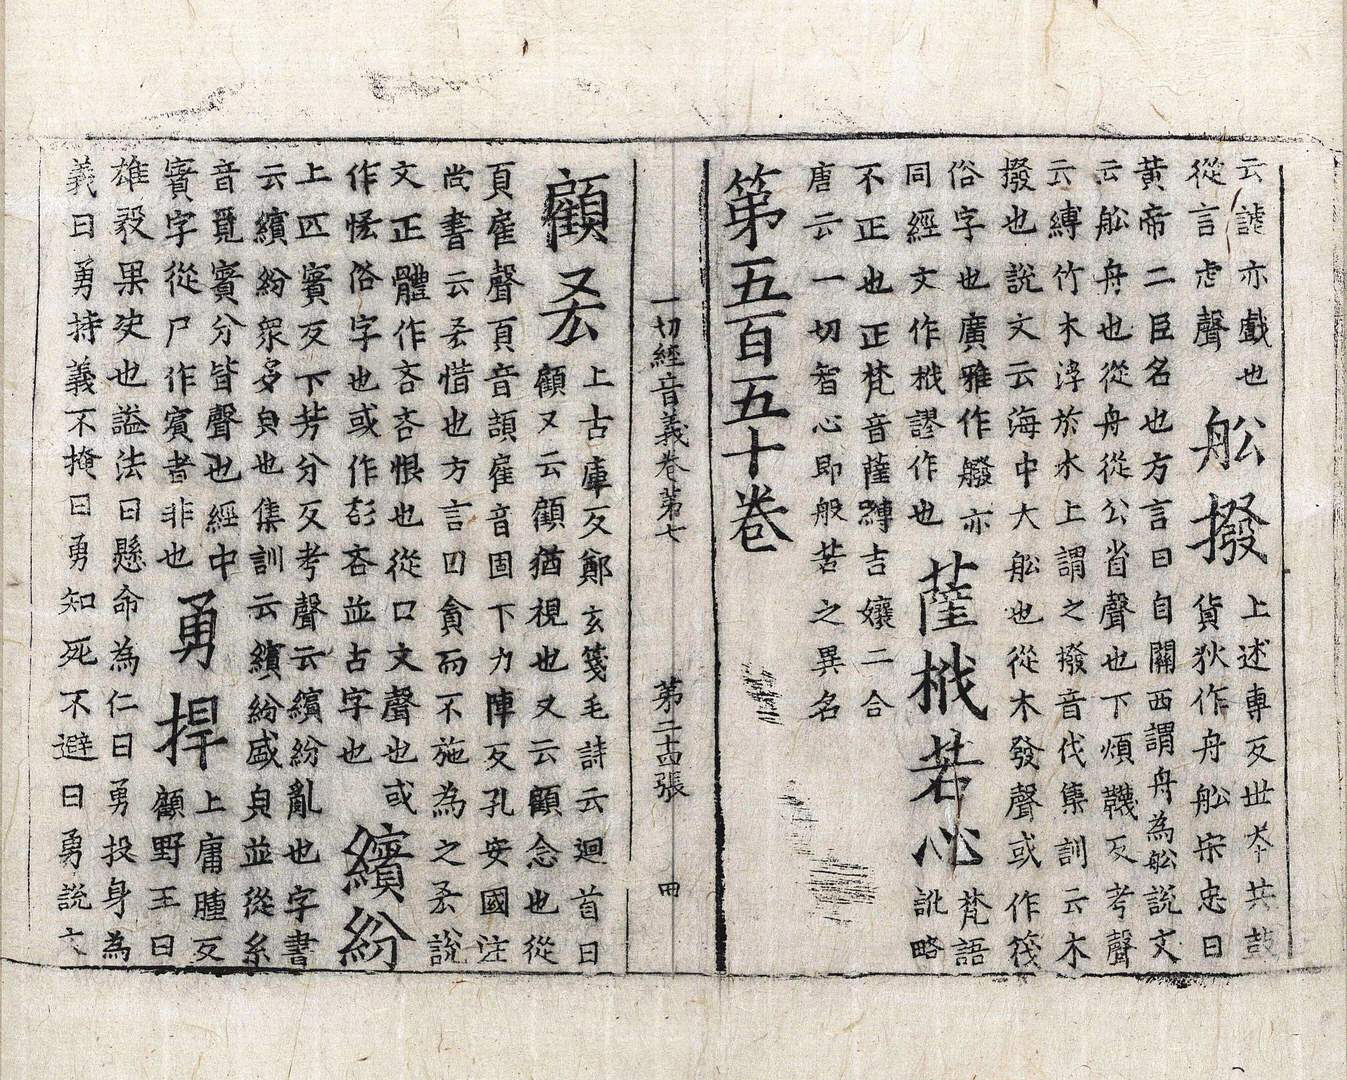 云謔亦戲也
從言虐聲
舩撥
上述專反世夲共鼓
貨狄作舟舩宋忠曰
黃帝二臣名也方言曰自關西謂舟為舩說文
云舩舟也從舟從公省聲也下煩韈反考聲
云縛竹木浮於水上謂之撥音伐集訓云木
撥也說文云海中大舩也從木發聲或作筏
俗字也廣雅作艐亦
同經文作栰謬作也
薩栰若心
梵語
訛略
不正也正梵音薩嚩吉孃二合
唐云一切智心即般若之異名
第五百五十卷
一切經音義卷第七 第二十四張 冊
顧悋
上古庫反鄭玄箋毛詩云迴首曰
顧又云顧猶視也又云顧念也從
頁雇聲頁音頡雇音固下力陣反孔安國注
尚書云悋惜也方言曰貪而不施為之悋說
文正體作吝吝恨也從口文聲也或
作恡俗字也或作㖁吝並古字也
繽紛
上匹賓反下芳分反考聲云繽紛亂也字書
云繽紛衆多皃也集訓云繽紛盛皃並從糸
音覓賓分皆聲也經中
賓字從尸作賔者非也
勇捍
上庸腫反
顧野王曰
雄毅果決也謚法曰懸命為仁曰勇投身為
義曰勇持義不掩曰勇知死不避曰勇說文